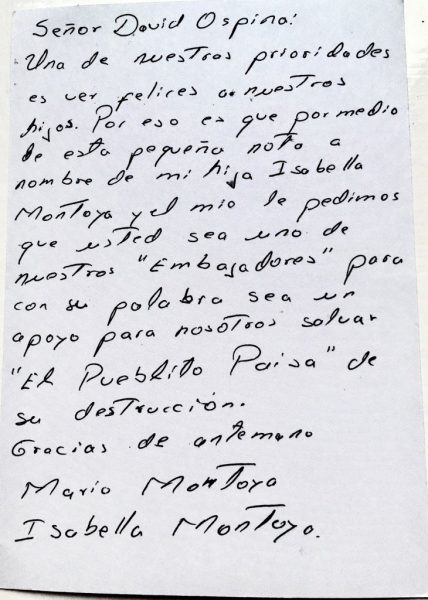 Señor David Ospina:
Una de nuestras prioridades
es ver felices a nuestros
hijos. Por eso es que por medio
de esta pequeña nota a
nombre de mi hija Isabella
Montoya y el mio le pedimos
que usted sea uno de
nuestros "Embajadores" para
con su palabra sea un
apoyo para nosotros salvar
"El Pueblito Paisa" de
su destrucción.
Gracias de antemano
Mario Montoya
Isabella Montoya.